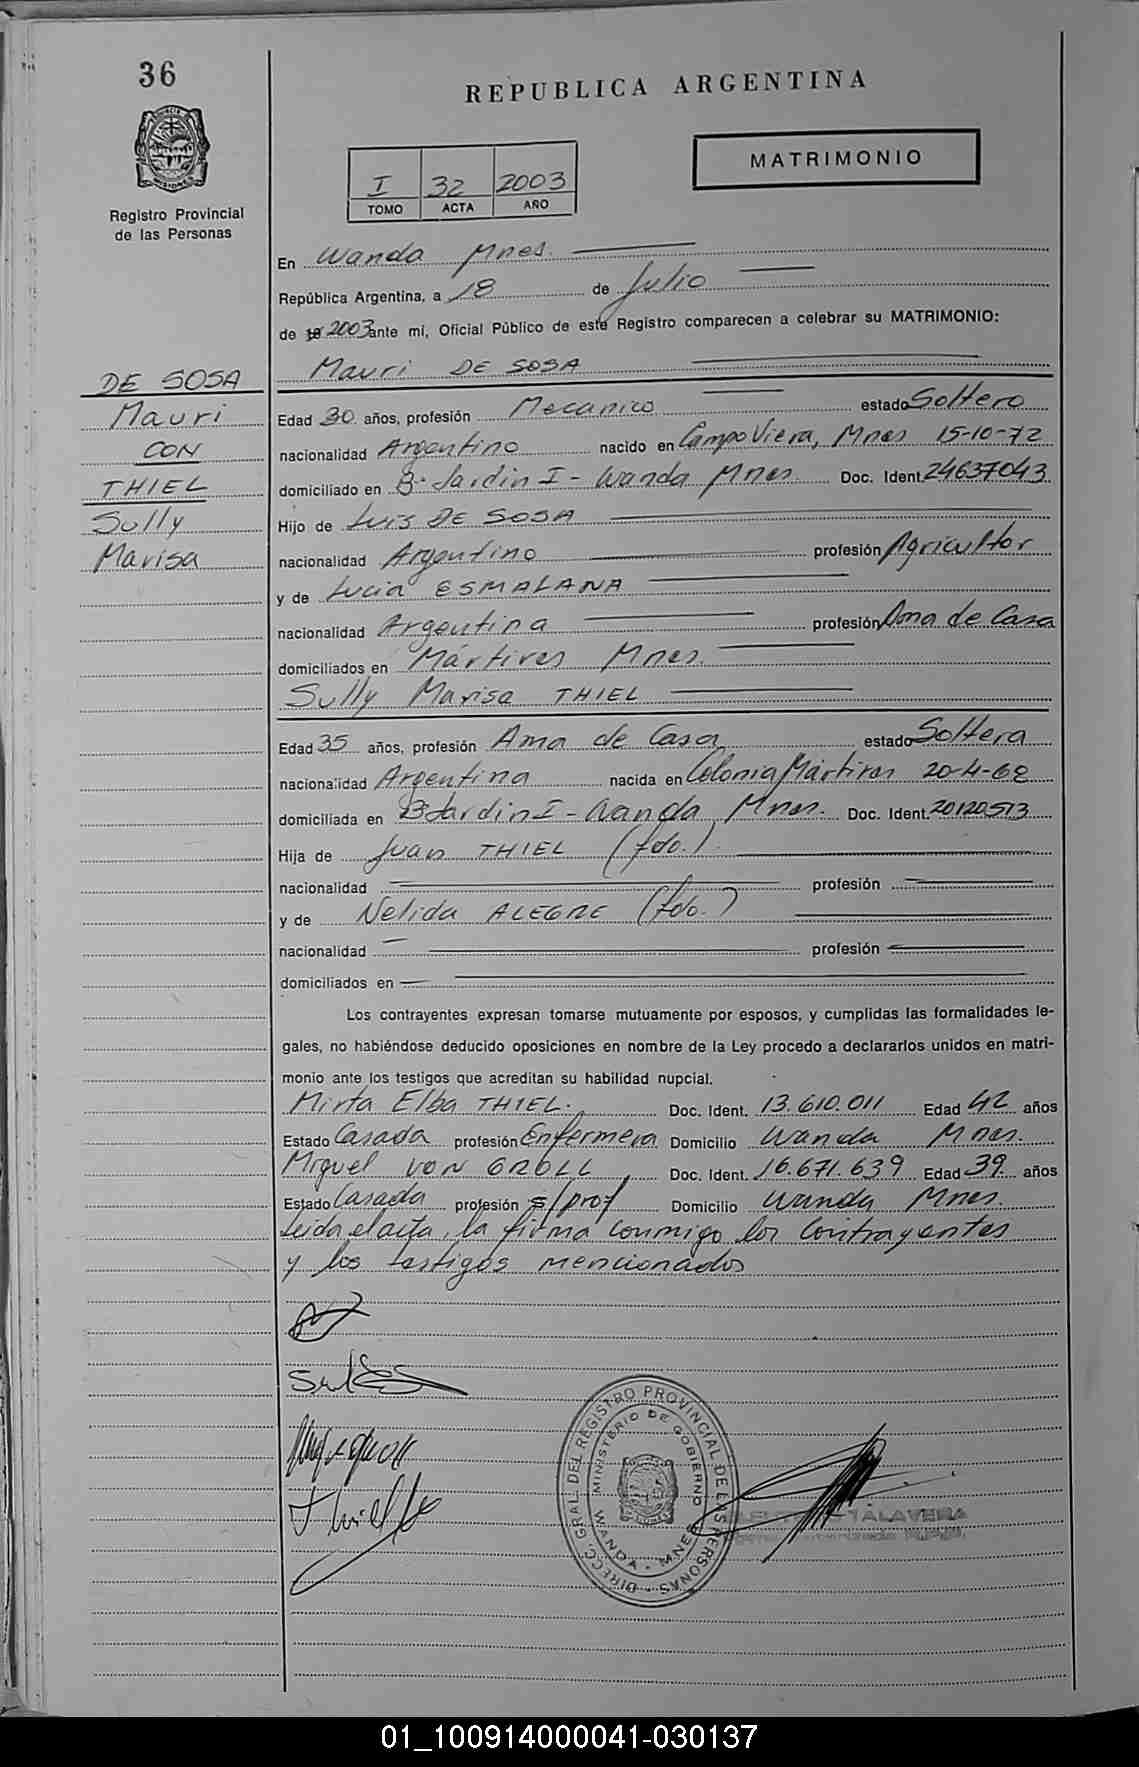 36
REPUBLICA ARGENTINA
MATRIMONIO
I 32 2003
TOMO ACTA AÑO
Registro Provincial
de las Personas
En Wanda Mnes.
República Argentina, a 18 de Julio
de 2003 ante mi, Oficial Público de este Registro comparecen a celebrar su MATRIMONIO:
Mauri DE SOSA
DE SOSA
Mauri
CON
THIEL
Sully
Marisa
Edad 30 años, profesión Mecanico estado Soltero
nacionalidad Argentino nacido en Campo Viera, Mnes 15-10-72
domiciliado en B° Jardin I - Wanda Mnes. Doc. Ident. 24637043
Hijo de Luis DE SOSA
nacionalidad Argentino profesión Agricultor
y de Lucia ESMALANA
nacionalidad Argentina profesión Ama de Casa
domiciliados en Mártires Mnes.
Sully Marisa THIEL
Edad 35 años, profesión Ama de Casa estado Soltera
nacionalidad Argentina nacida en Colonia Mártires 20-4-68
domiciliada en B° Jardin I - Wanda Mnes. Doc. Ident. 20120513
Hija de Juan THIEL (fdo.)
nacionalidad profesión
y de Nelida ALEGRE (fdo.)
nacionalidad profesión
domiciliados en
Los contrayentes expresan tomarse mutuamente por esposos, y cumplidas las formalidades le-
gales, no habiéndose deducido oposiciones en nombre de la Ley procedo a declararlos unidos en matri-
monio ante los testigos que acreditan su habilidad nupcial.
Mirta Elba THIEL. Doc. Ident. 13.610.011 Edad 42 años
Estado Casada profesión Enfermera Domicilio Wanda Mnes.
Miguel VON GROLL Doc. Ident. 16.671.639 Edad 39 años
Estado Casada profesión s/prof Domicilio Wanda Mnes.
Leida el acta, la firma conmigo los Contrayentes
y los testigos mencionados
DIRECC. GRAL. DEL REGISTRO PROVINCIAL DE LAS PERSONAS
MINISTERIO DE GOBIERNO
WANDA - MNES
TALAVERA
01_100914000041-030137